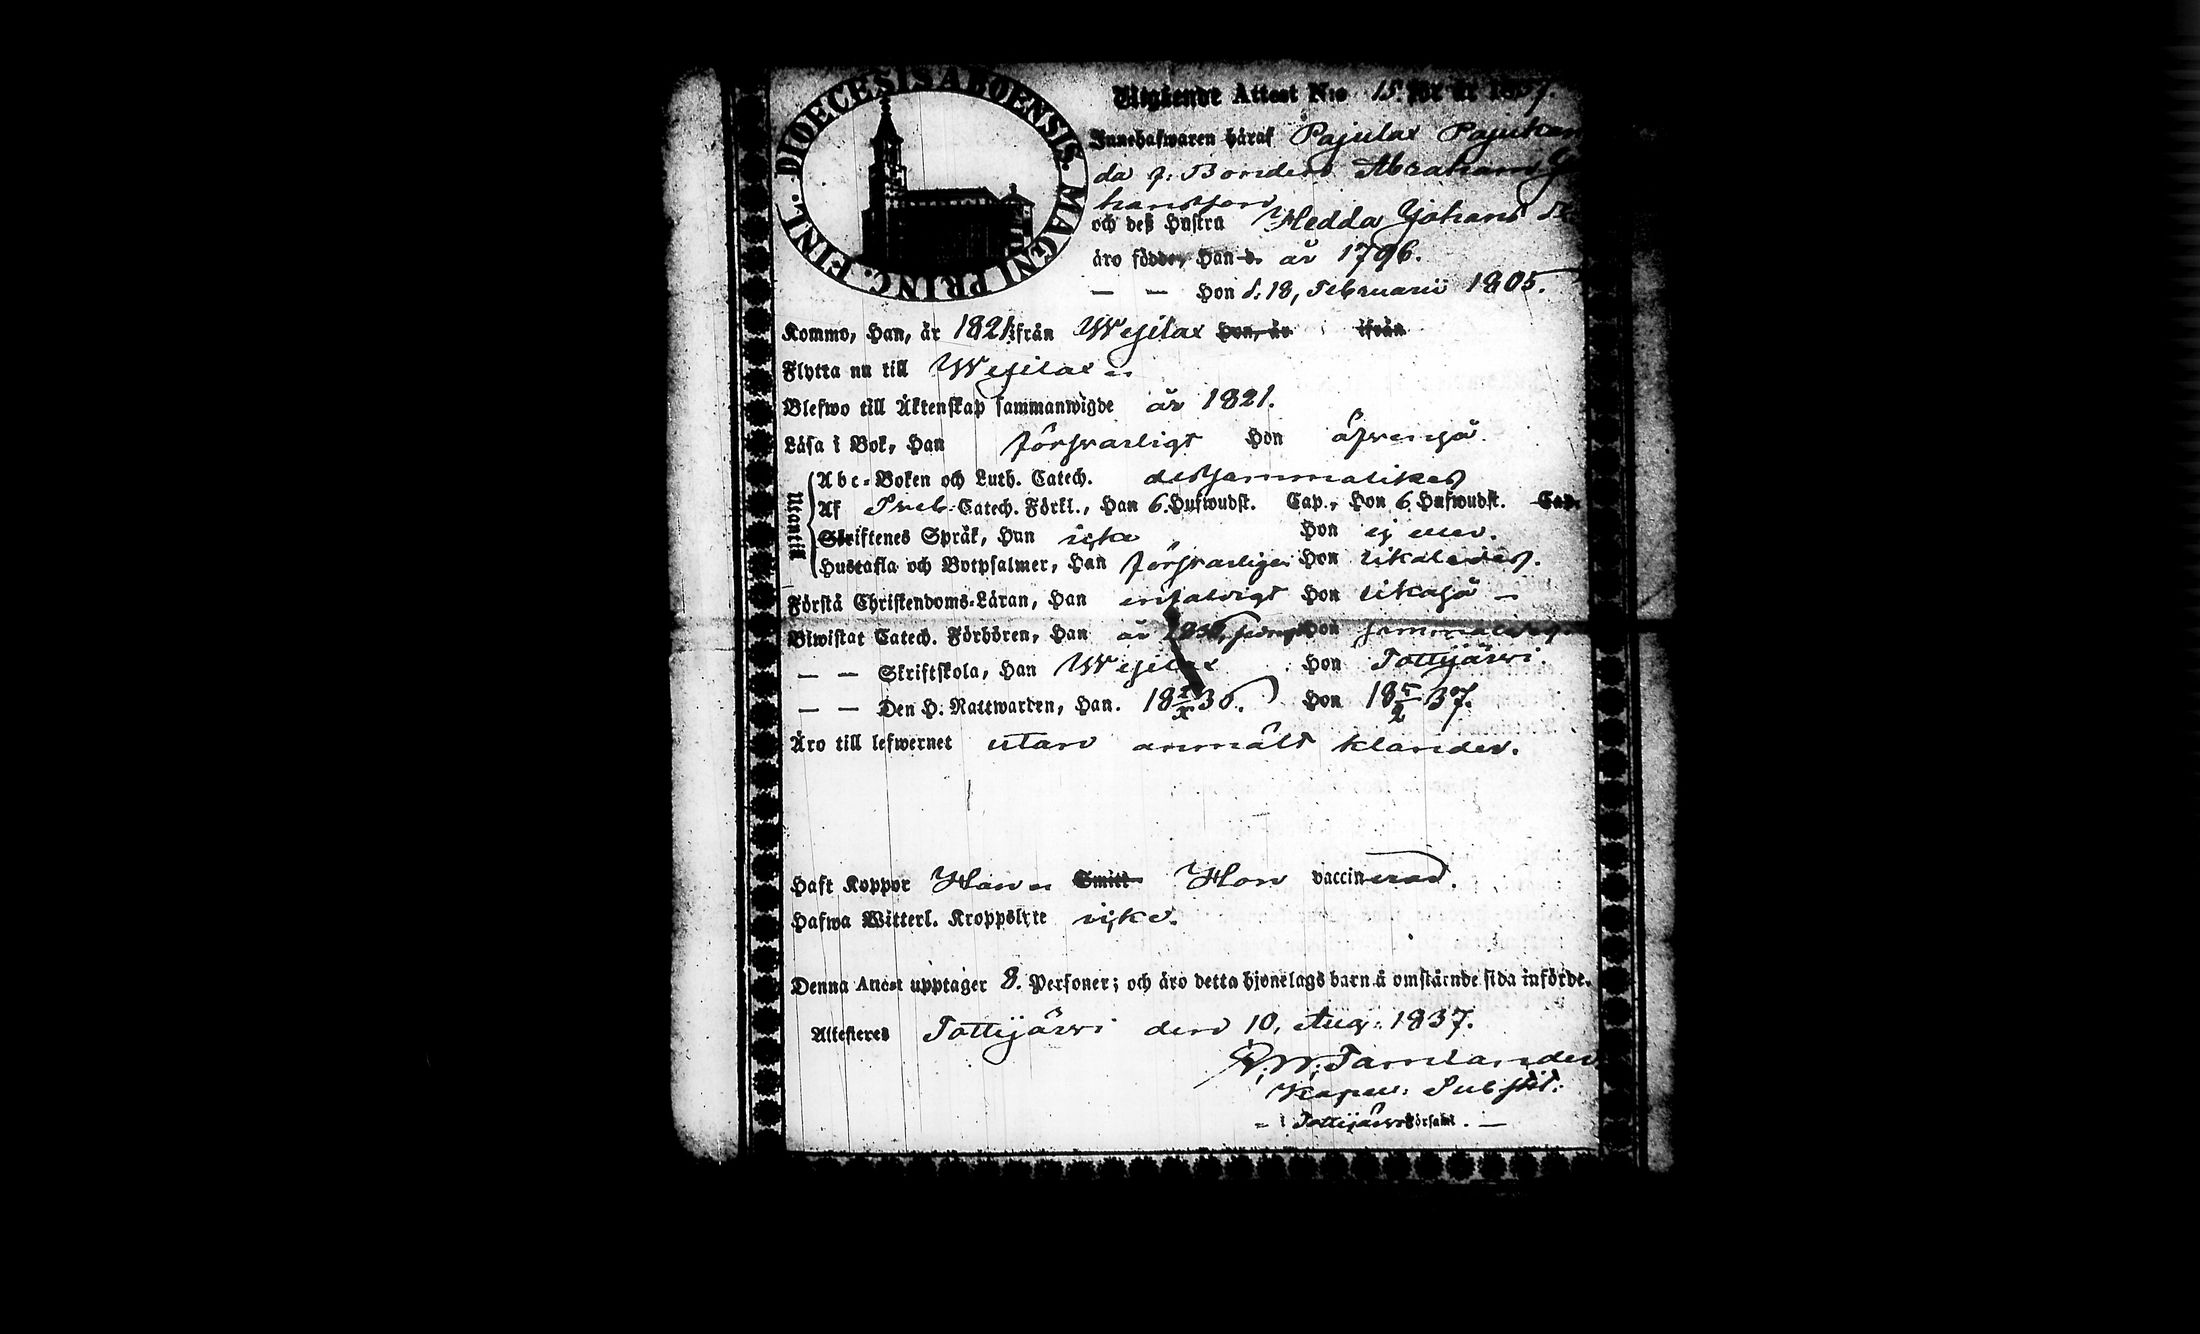 DIOECESIS ABOENSIS. MAGNI PRINC. FINL.
Utgående Attest N:o 15. för år 1837.
Innehafwaren häraf Pajula Pajuken
da f. Bonden Abraham Jo
hansson
och deß Hustru Hedda Johans
äro födde, Han d. år 1796.
— — Hon d. 18, Februarii 1805.
Kommo, Han, år 1821 ifrån Wesilax Hon, år ifrån
Flytta nu till Wesilax
Blefwo till Äktenskap sammanwigde år 1821.
Läsa i Bok, Han försvarligt Hon äfvenså.
Utantill
Abc-Boken och Luth. Catech. dessammalikes
Af Sveb. Catech. Förkl., Han 6. Hufwudst. Cap., Hon 6 Hufwudst. Cap.
Skriftenes Språk, Han icke Hon ej eller.
Hustafla och Botpsalmer, Han försvarligen Hon likaledes.
Förstå Christendoms-Läran, Han enfaldigt Hon likaså —
Biwistat Catech. Förhören, Han år Hon
— — Skriftskola, Han Wesilax Hon Tottijärvi.
— — Den H. Nattwarden, Han. Hon 18 5/2 37.
Äro till lefwernet utan anmält klander.
Haft Koppor Han Smitt Hon vaccinerad.
Hafwa Witterl. Kroppslyte icke.
Denna Attest upptager 8. Personer; och äro detta hjonelags barn å omstående sida införde.
Attesteres Tottijärvi den 10, Aug. 1837.
Tamlander
Kapell: Subst:
i Tottijärvi Församl. —